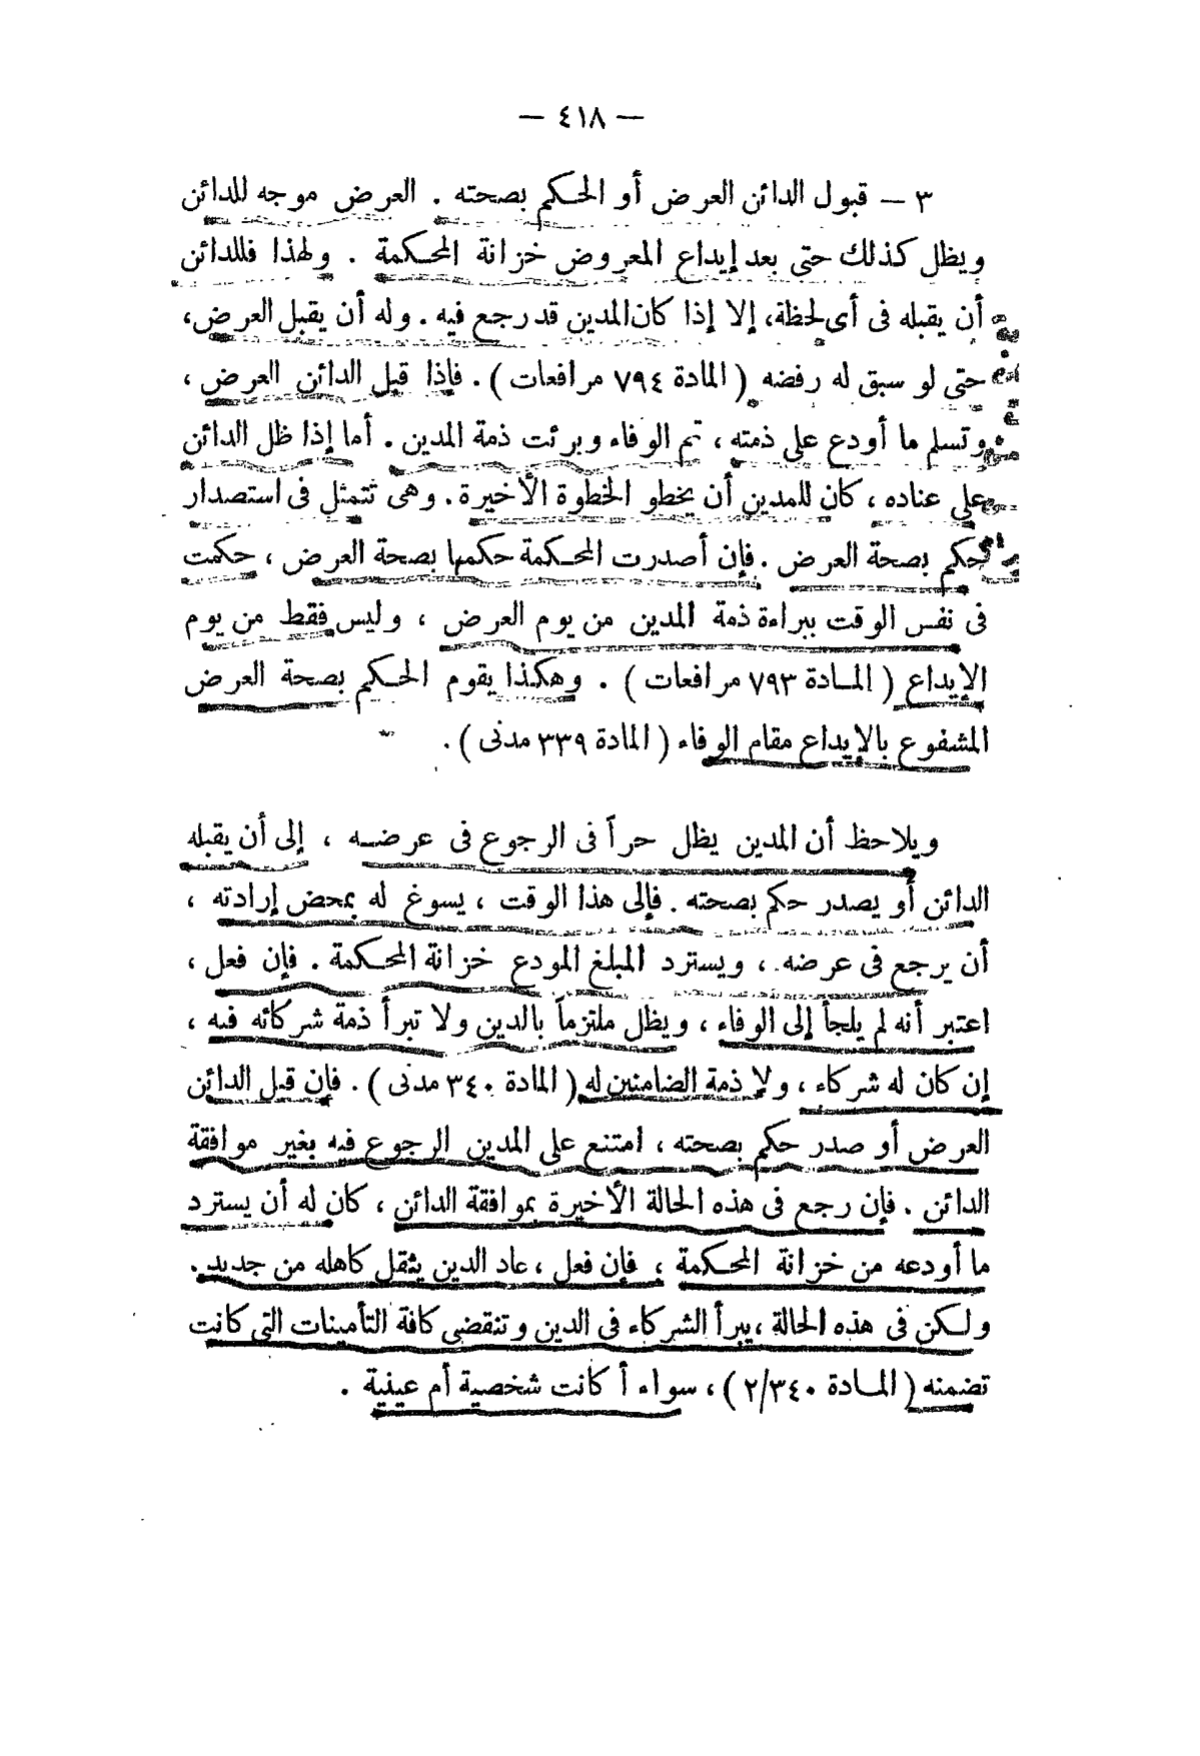 — ٤١٨ —
٣ — قبول الدائن العرض أو الحكم بصحته . العرض موجه للدائن
ويظل كذلك حتى بعد إيداع المعروض خزانة المحكمة . ولهذا فللدائن
أن يقبله فى أى لحظة، إلا إذا كان المدين قد رجع فيه . وله أن يقبل العرض،
حتى لو سبق له رفضه ( المادة ٧٩٤ مرافعات ) . فإذا قبل الدائن العرض ،
وتسلم ما أودع على ذمته ، تم الوفاء وبرئت ذمة المدين . أما إذا ظل الدائن
على عناده ، كان للمدين أن يخطو الخطوة الأخيرة . وهى تتمثل فى استصدار
حكم بصحة العرض . فإن أصدرت المحكمة حكمها بصحة العرض ، حكمت
فى نفس الوقت ببراءة ذمة المدين من يوم العرض ، وليس فقط من يوم
الإيداع ( المادة ٧٩٣ مرافعات ) . وهكذا يقوم الحكم بصحة العرض
المشفوع بالإيداع مقام الوفاء ( المادة ٣٣٩ مدنى ) .
ويلاحظ أن المدين يظل حراً فى الرجوع فى عرضه ، إلى أن يقبله
الدائن أو يصدر حكم بصحته . فإلى هذا الوقت ، يسوغ له بمحض إرادته ،
أن يرجع فى عرضه ، ويسترد المبلغ المودع خزانة المحكمة . فإن فعل ،
اعتبر أنه لم يلجأ إلى الوفاء ، ويظل ملتزماً بالدين ولا تبرأ ذمة شركائه فيه ،
إن كان له شركاء ، ولا ذمة الضامنين له ( المادة ٣٤٠ مدنى ) . فإن قبل الدائن
العرض أو صدر حكم بصحته ، امتنع على المدين الرجوع فيه بغير موافقة
الدائن . فإن رجع فى هذه الحالة الأخيرة بموافقة الدائن ، كان له أن يسترد
ما أودعه من خزانة المحكمة ، فإن فعل ، عاد الدين يثقل كاهله من جديد .
ولكن فى هذه الحالة ، يبرأ الشركاء فى الدين وتنقضى كافة التأمينات التى كانت
تضمنه ( المادة ٢/٣٤٠ ) ، سواء أكانت شخصية أم عينية .